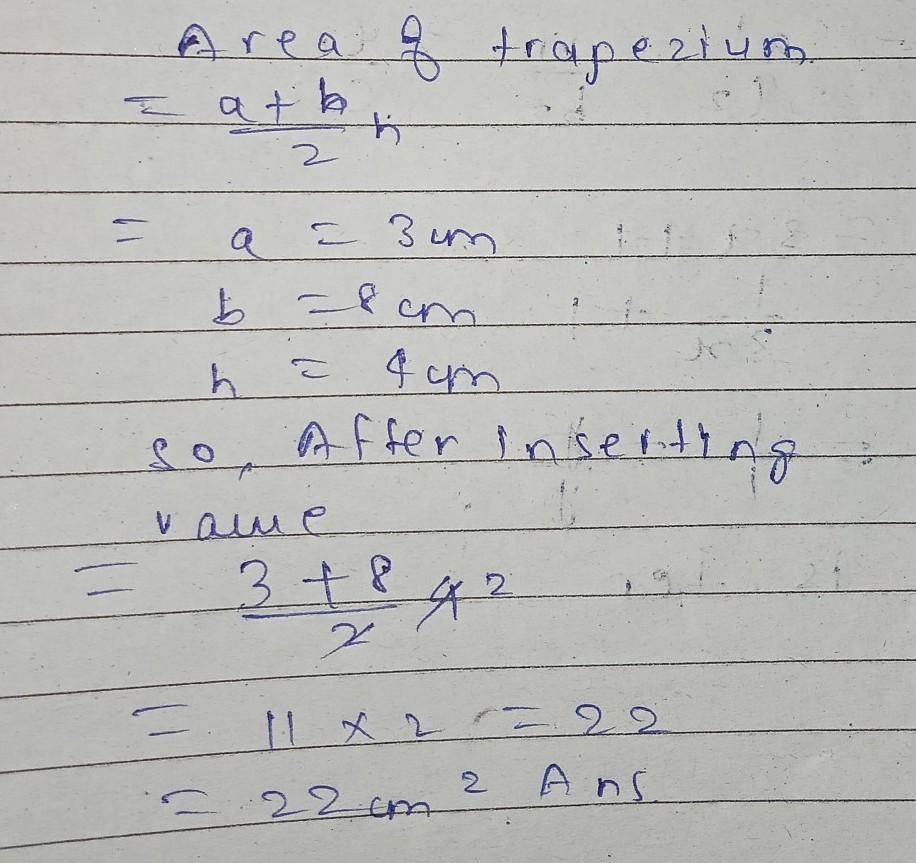 Area of trapezium
= a + b / 2 h
= a = 3 cm
b = 8 cm
h = 4 cm
so, After inserting
value
= 3 + 8 / 2 4 2
= 11 x 2 = 22
= 22 cm² Ans